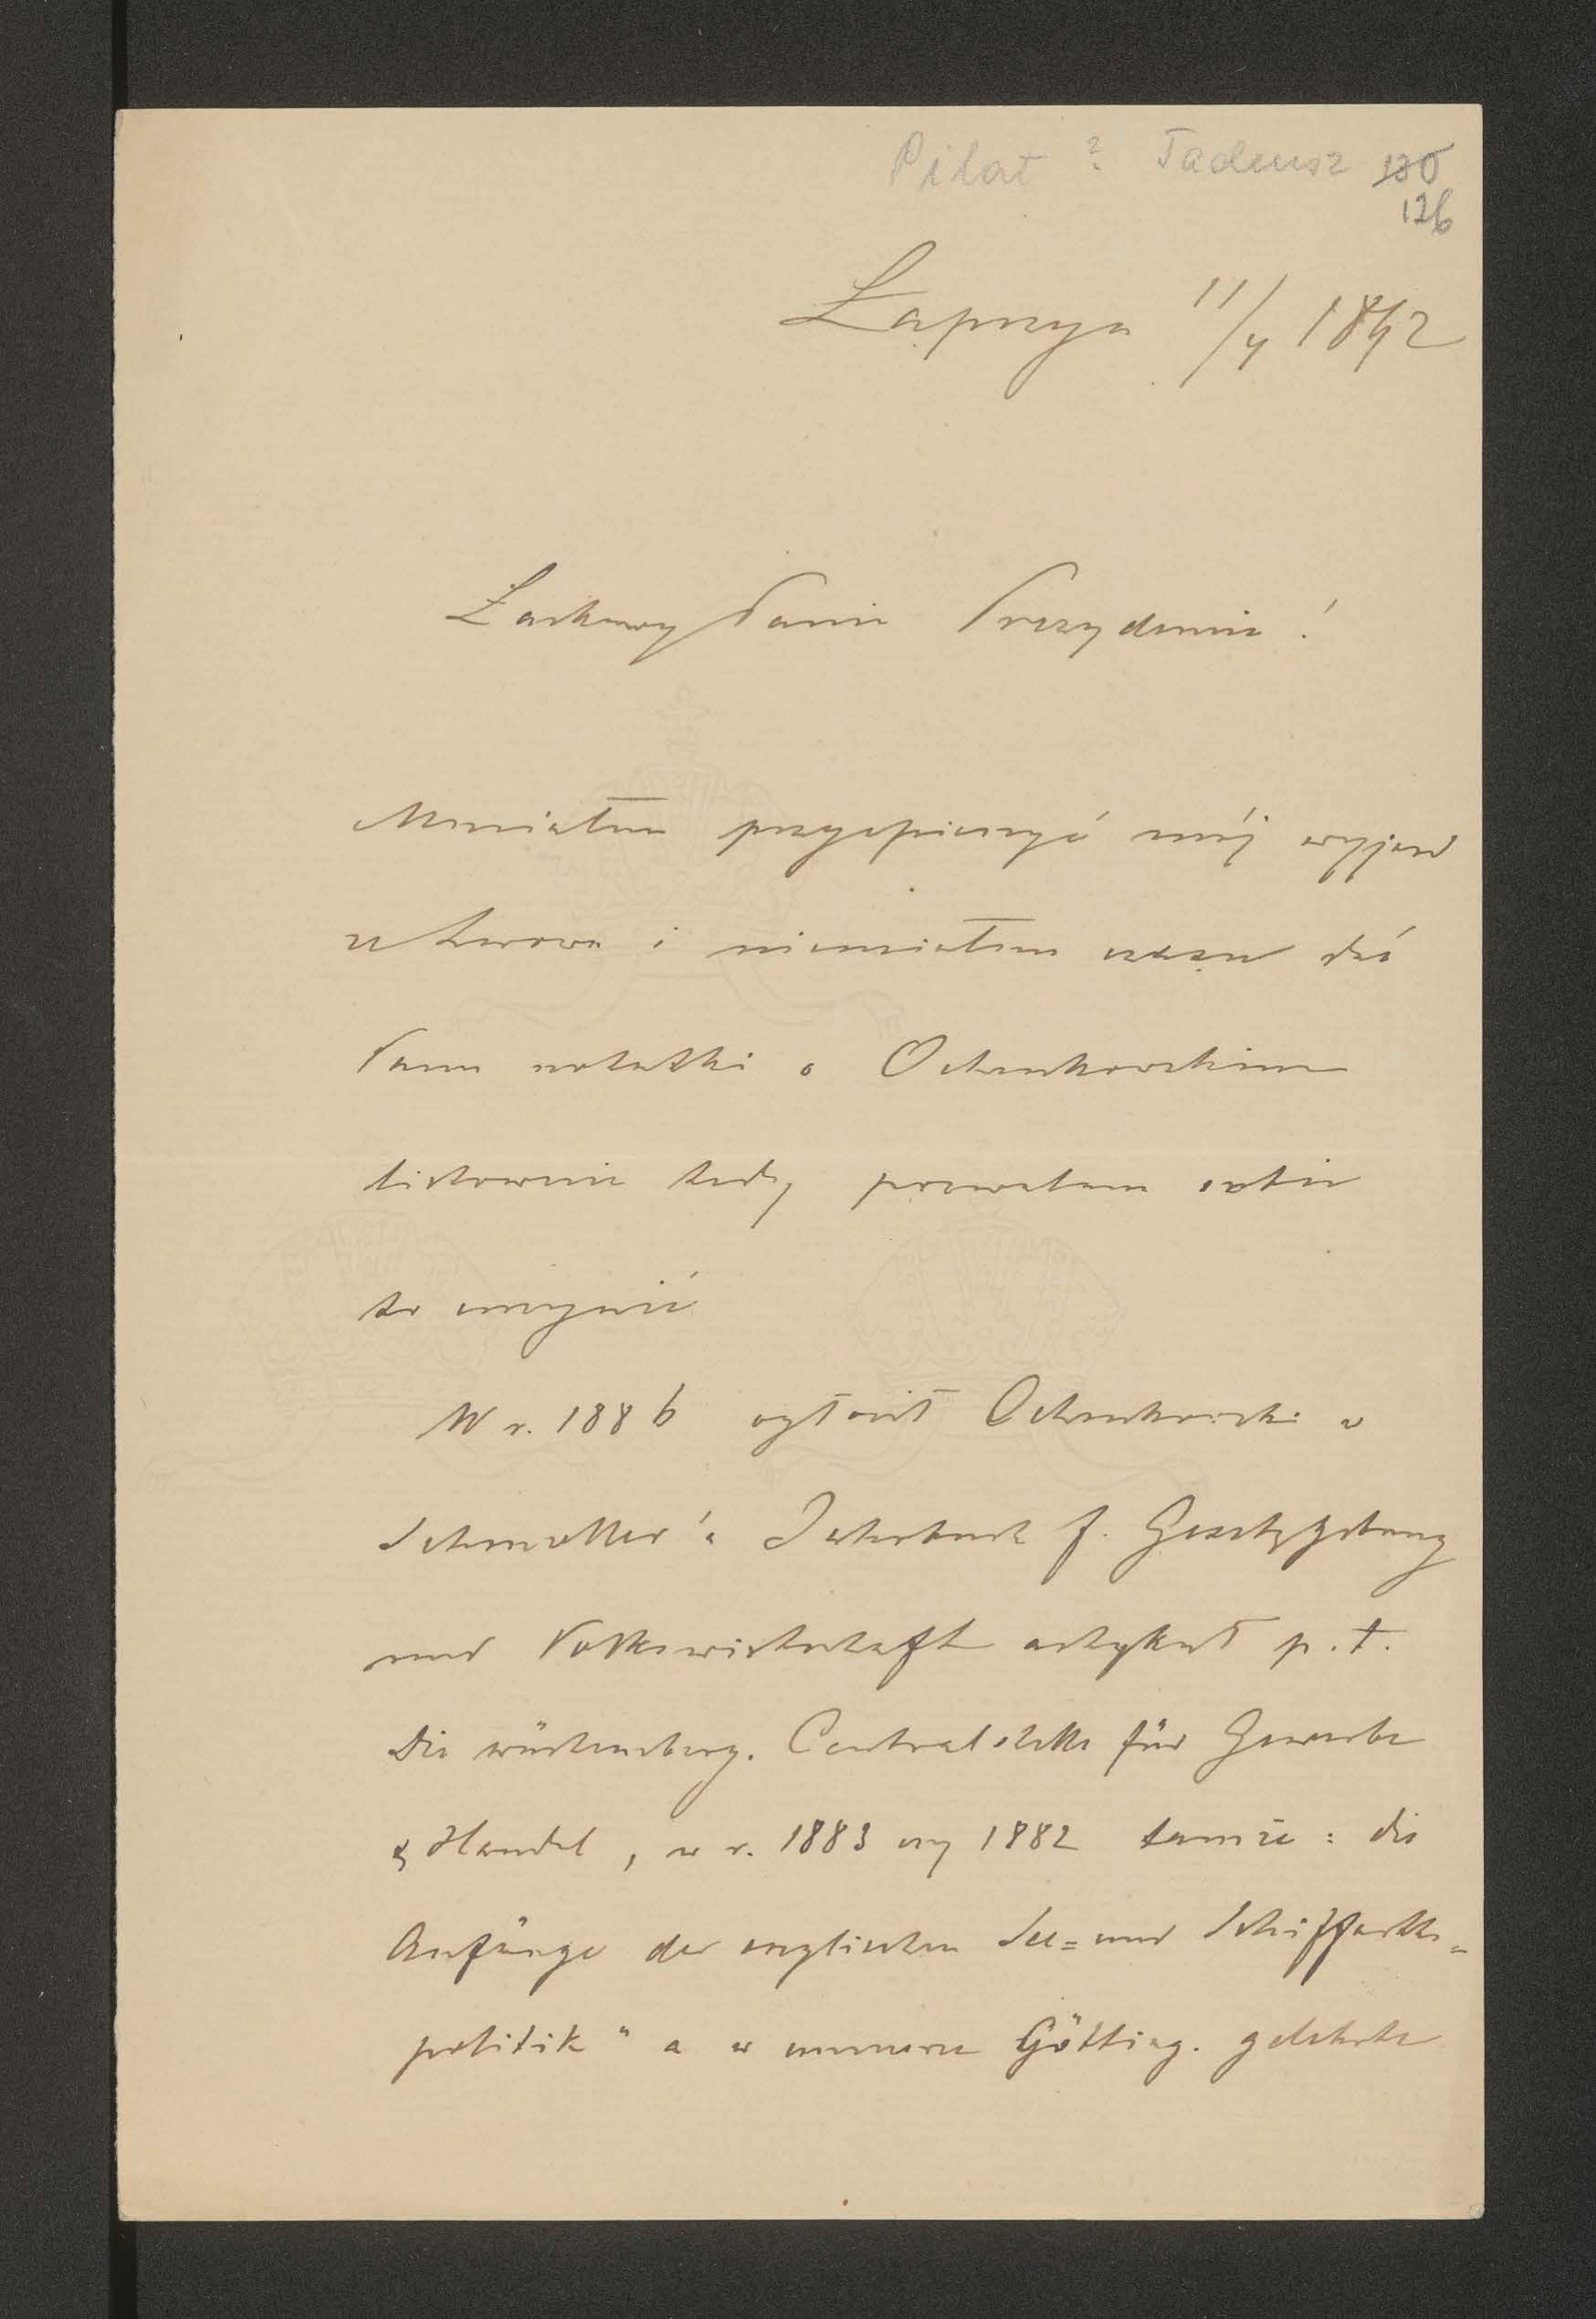 Pilat ? Tadeusz 130
126
Łapszyn 11/4 1892
Łaskawy Panie Prezydencie!
Musiałem przyspieszyć mój wyjazd
ze Lwowa i niemiałem czasu dać
Panu notatki o Ochenkowskim
listownie tedy pozwalam sobie
to uczynić
W r. 1886 ogłosił Ochenkowski w
Schmoller's Jahrbuch f. Gesetzgebung
und Volkswirtschaft artykuł p. t.
Die würtemberg. Centralstelle für Gewerbe
& Handel, w r. 1883 czy 1882 tamże: die
Anfänge der englischen See= und Schiffahrts=
politik" a w numerze Götting. gelehrte